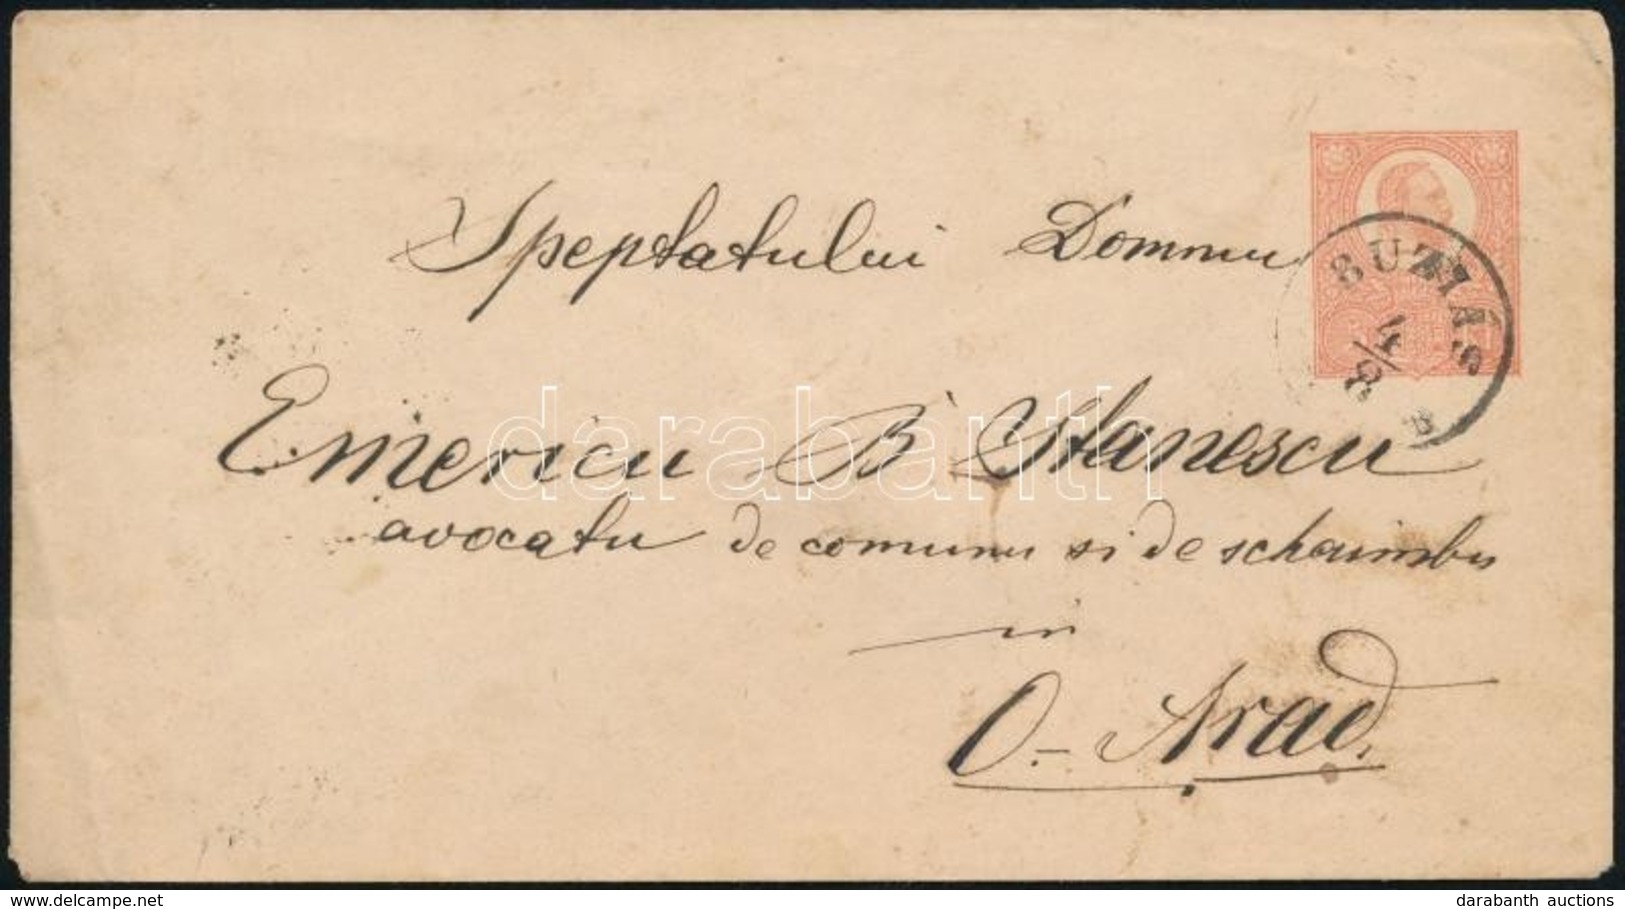 Speptatului Domnu
BUZIÁS
4/8
Emericu B Stanescu
avocatu de comunu si de schaimbu
in
O-Arad.
darabanth
delcampe.net
darabanth auctions